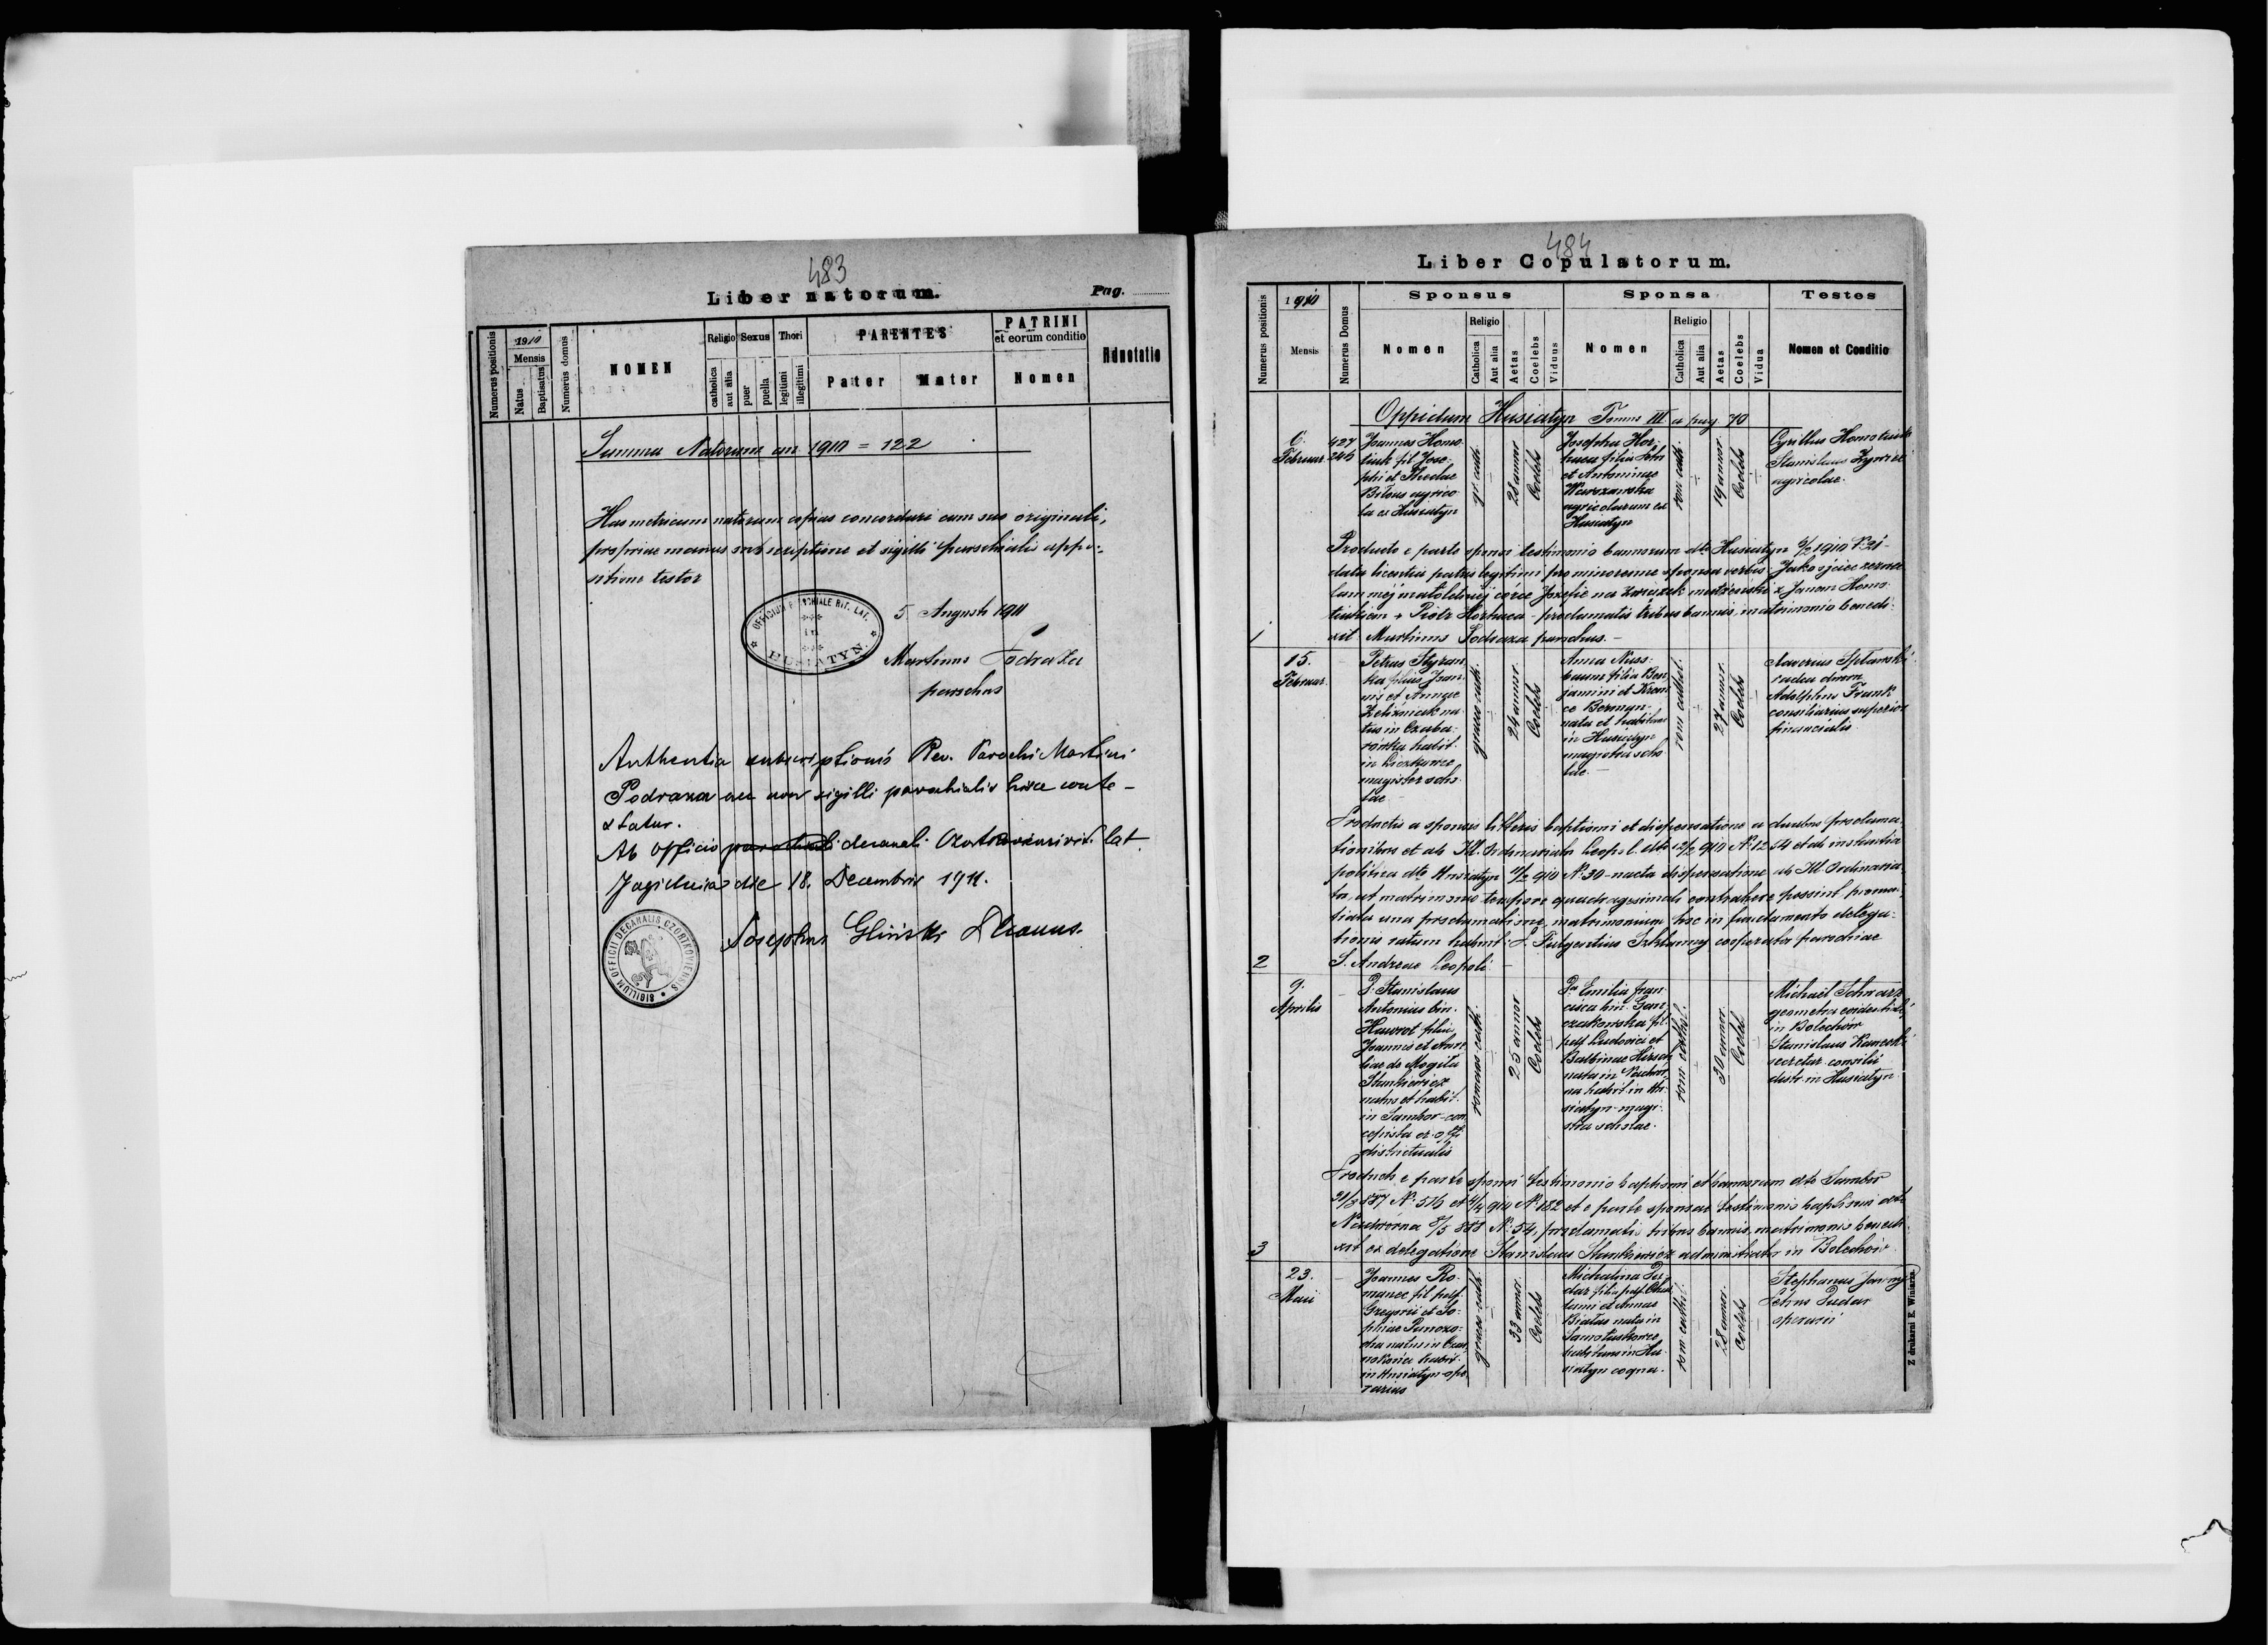 483
Liber natorum.
Pag.
Numerus positionis
1910
Mensis
Natus
Baptisatus
Numerus domus
NOMEN
Religio
catholica
aut alia
Sexus
puer
puella
Thori
legitimi
illegitimi
PARENTES
Pater
Mater
PATRINI
et eorum conditio
Nomen
Adnotatio
Summa Natorum an 1910 = 122
Has metricum natorum copias concordare cum suo originali,
propriae manus subscriptione et sigilli parochialis appo-
sitione testor
OFFICIUM PAROCHIALE RIT. LAT.
in
HUSIATYN.
5 Augusti 1911
Martinus Podraza
parochus
Authentia subscriptionis Rev. Parochi Martini
Podraza nec non sigilli parochialis hisce conte-
statur.
Ab Officio decanali lat.
Jagielnica die 18. Decembris 1911.
SIGILLUM OFFICII DECANALIS CZORTKOVIENSIS
Josephus Gliński Decanus.
484
Liber Copulatorum.
Numerus positionis
1910
Mensis
Numerus Domus
Sponsus
Nomen
Religio
Catholica
Aut alia
Aetas
Coelebs
Viduus
Sponsa
Nomen
Religio
Catholica
Aut alia
Aetas
Coelebs
Vidua
Testes
Nomen et Conditio
Oppidum Husiatyn Tomus III a pag 70
1
6.
Februar
427
246
Joannes Homo-
tiuk fil Jose-
phi et Theclae
Bilous agrico-
la ex Husiatyn
gr. cath.
28 annor
Coelebs
Josepha Hor-
huca filia Petri
et Antoninae
Warszawska
agricolarum ex
Husiatyn
rom cath.
19 annor
Coelebs
Cyrillus Homotiuk
Stanislaus
agricolae.
Producto e parte sponsi testimonio bannorum dto Husiatyn 6/2 1910 N: 21 -
data licentia patris legitimi pro minorenne sponsa verbis: Jako ojciec zezwa-
lam mej małoletniej córce Józefie na związek małżeński z Janem Homo-
tiukiem + Piotr Horhuca - proclamatis tribus bannis, matrimonio benedi-
xit Martinus Podraza parochus. -
2
15.
Februar.
Petrus Styran-
ka filius Joan-
nis et Annae
na-
tus in Czaba-
rówka habit.
in
magister scho-
lae
graeco cath.
24 annor.
Coelebs
Anna Nuss-
baum filia Ben-
jamini et
ce
nata et habitans
in Husiatyn
magistra scho-
lae. -
rom cathol.
27 annor.
Coelebs
Xaverius
Adolphus Frank
consiliarius superior
financialis
Productis a sponsis litteris baptismi et dispensatione a duabus proclama-
tionibus et ab Ill. Ordinariatu Leopol. dto 12/2 910 N: 1254 et ab instantia
politica dto Husiatyn 11/2 910 N: 30 - nacta dispensatione ab Ill. Ordinaria-
tu, ut matrimonio tempore quadragesimali contrahere possint prema-
tiata una proclamatione, matrimonium hoc in fundamento delega-
tionis ratum habuit P. Fulgentius cooperator parochiae
S. Andreae Leopoli
3
9.
Aprilis
D. Stanislaus
Antonius bin.
Hawrot filius
Joannis et Ame-
liae de Mogiła
Stankiewicz
natus et habit.
in Sambor - con-
cepista ex offi
districtualis
romano cath.
25 annor
Coelebs
Da Emilia Fran-
cisca bin. Gan-
czakowska fil.
pdf Ludovici et
Balbinae Hirsch
nata in Nadwór-
na habit. in Hu-
siatyn - magi-
stra scholae.
rom cathol.
30 annor.
Coelebs
Michaël Schwarz
geometra
in Bolechów
Stanislaus
secretar. consilii
distr in Husiatyn
Producto e parte sponsi testimonio baptismi et bannorum dto Sambor
N: 516 et 4/4 910 N: 182 et e parte sponsae testimonio baptismi dto
Nadwórna 8/5 888 N: 54, proclamatis tribus bannis, matrimonio benedi-
xit ex delegatione Stanislaus Stankiewicz administrator in Bolechów
23.
Maii
Joannes Ro-
maniec fil pdf.
Gregorii et So-
phiae
natus in Czar-
nokońce habit.
in Husiatyn ope-
rarius
graeco cath.
33 annor.
Coelebs
Michalina Du-
dar filia pdf.
et Annae
Białas nata in
Samołuskowce
habitans in Hu-
siatyn coqua.
rom cathol.
28 annor.
Coelebs
Stephanus
Petrus Dudar
operarii
Z drukarni E. Winiarza